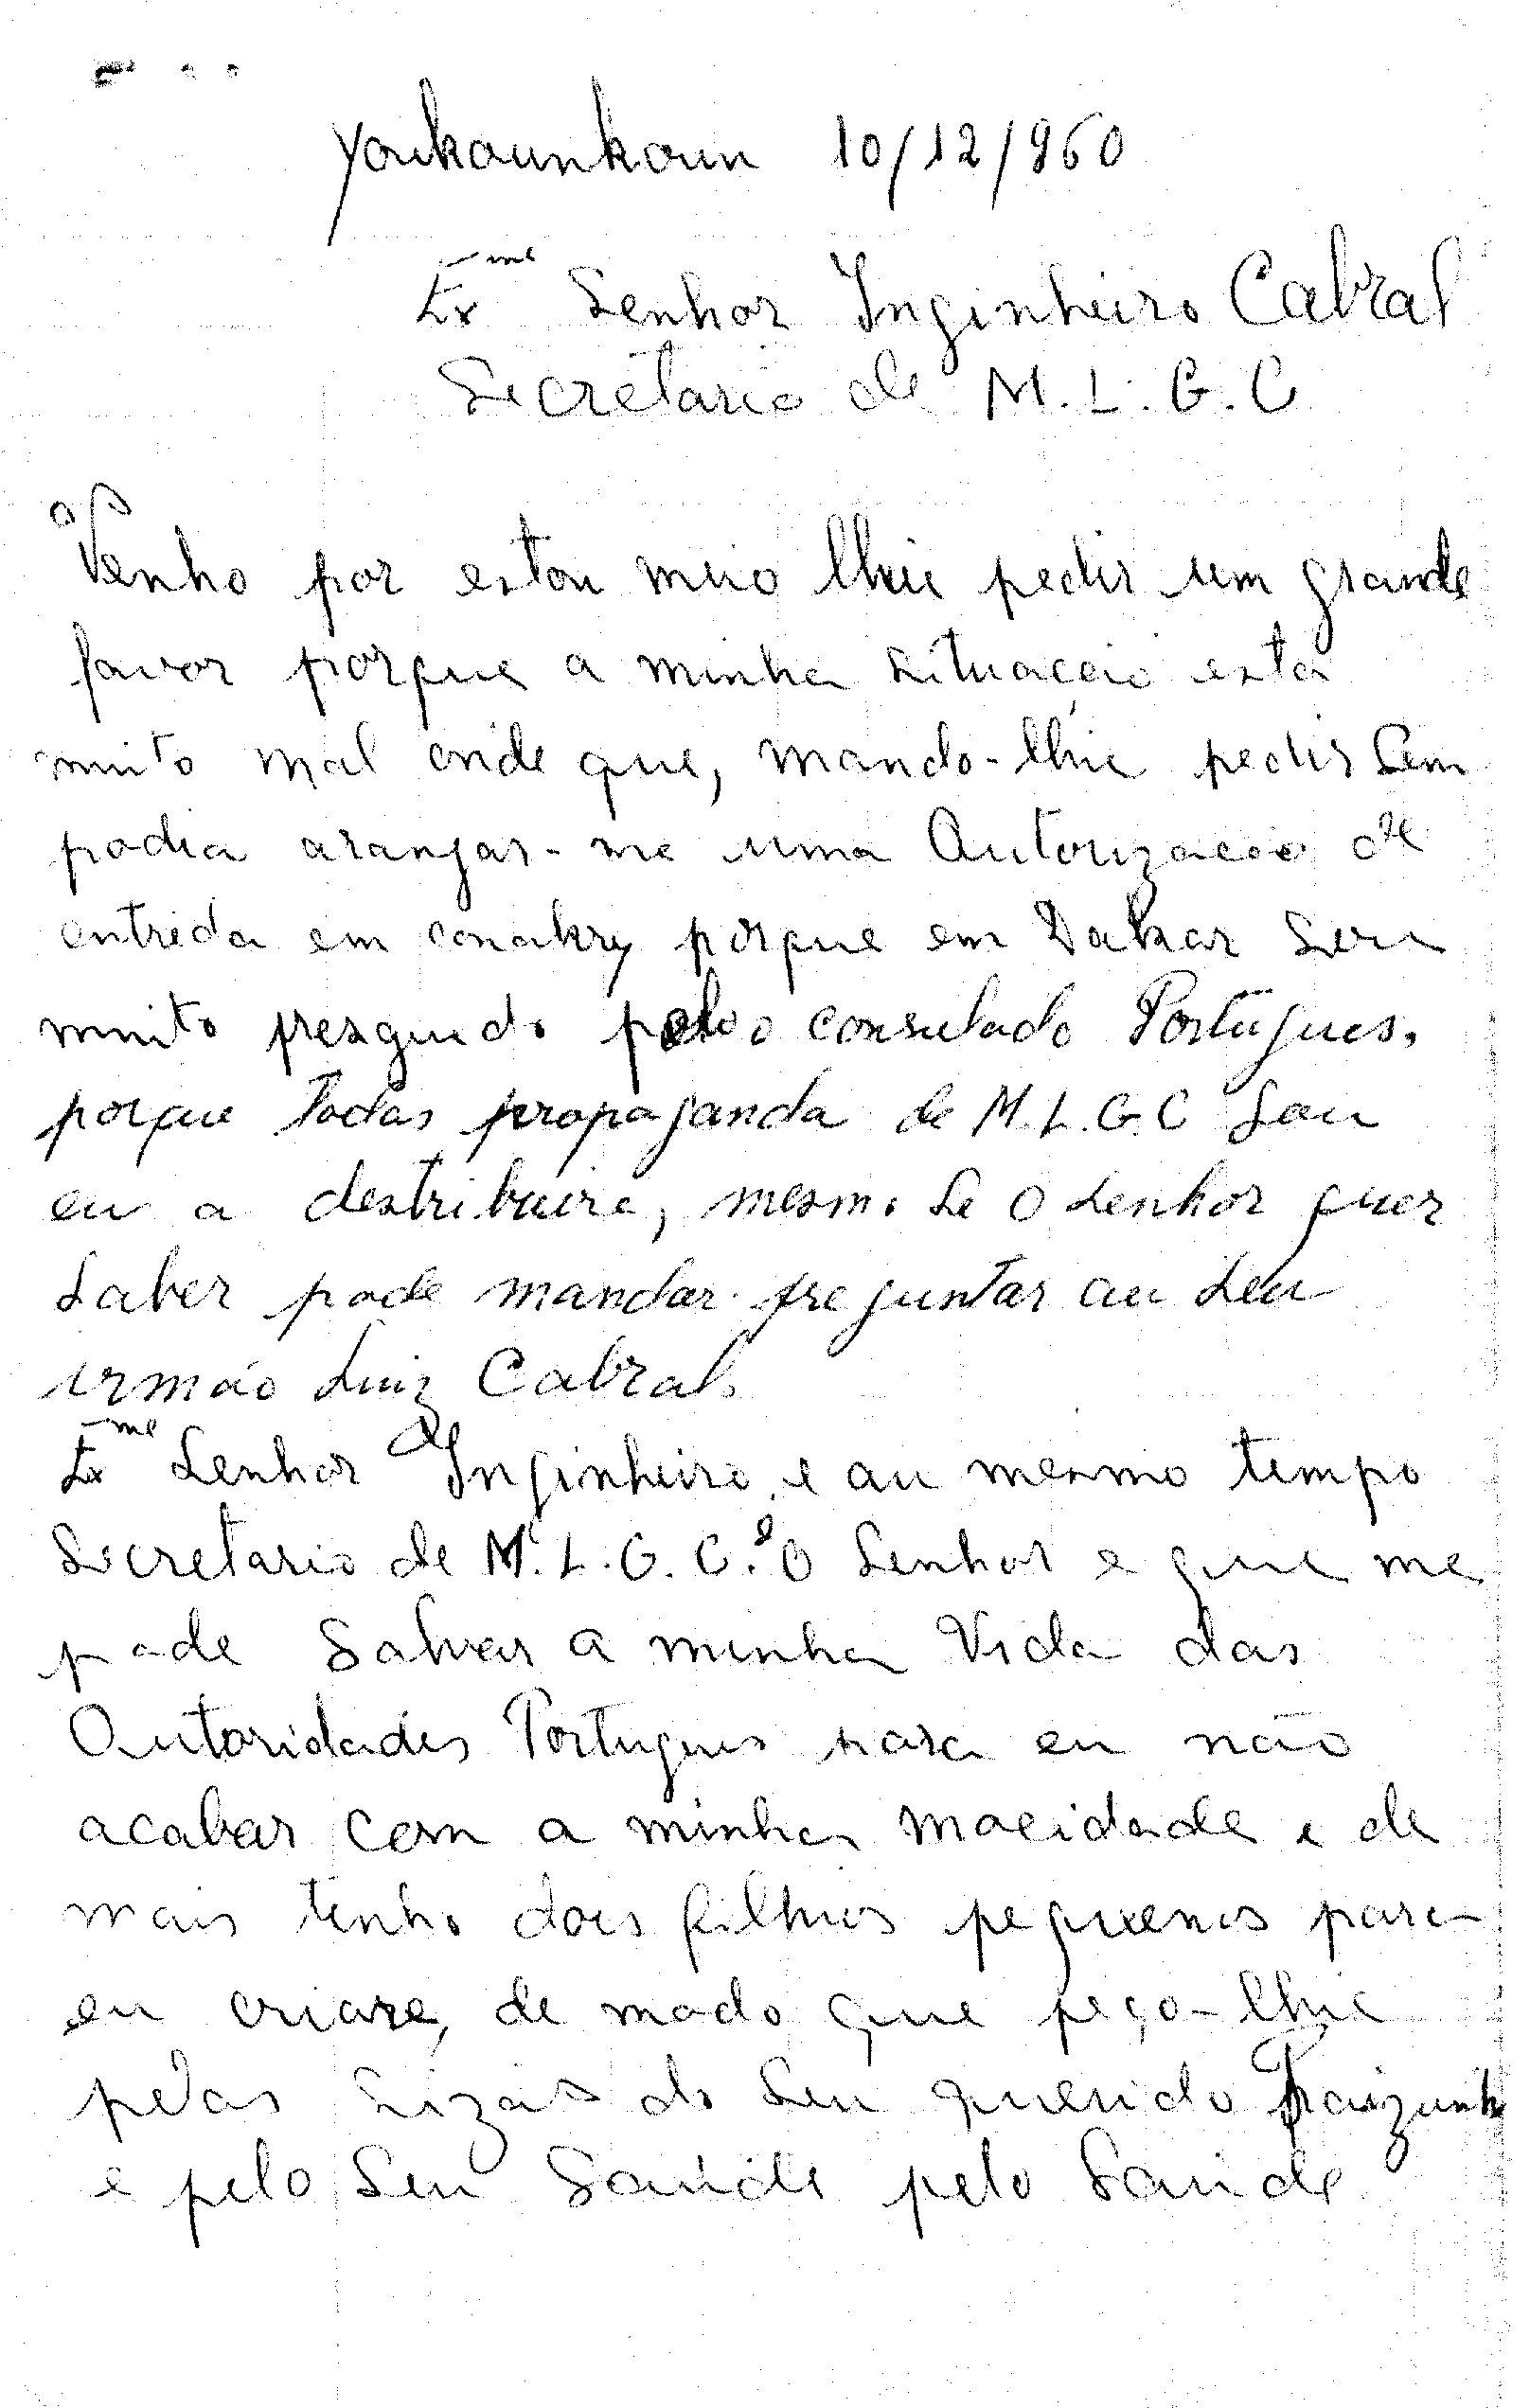 Youkounkoun 10/12/960
Exme Senhor Inginheiro Cabral
Secretario de M.L.G.C
Venho por estou meio lhie pedir um grande
favor porque a minha situação esta
muito mal onde que, mando-lhie pedir sem
podia aranjar-me uma Autorizacão de
entrida em conakry porque em Dakar sou
muito presguido pelo o consulado Portugues,
porque todas propaganda de M.L.G.C sou
eu a destribuire, mesmo se o senhor quer
saber pode mandar preguntar au seu
irmão Luiz Cabral.
Exme Senhor Inginheiro, e au mesmo tempo
Secretario de M.L.G.C. O Senhor e que me
pode Salvar a minha Vida das
Autoridades Portugues para eu não
acabar com a minha macidade e de
mais tenho dois filhios pequenos para
eu criare, de modo que peço-lhie
pelas do seu querido
e pelo Seu Saúde pelo Saude